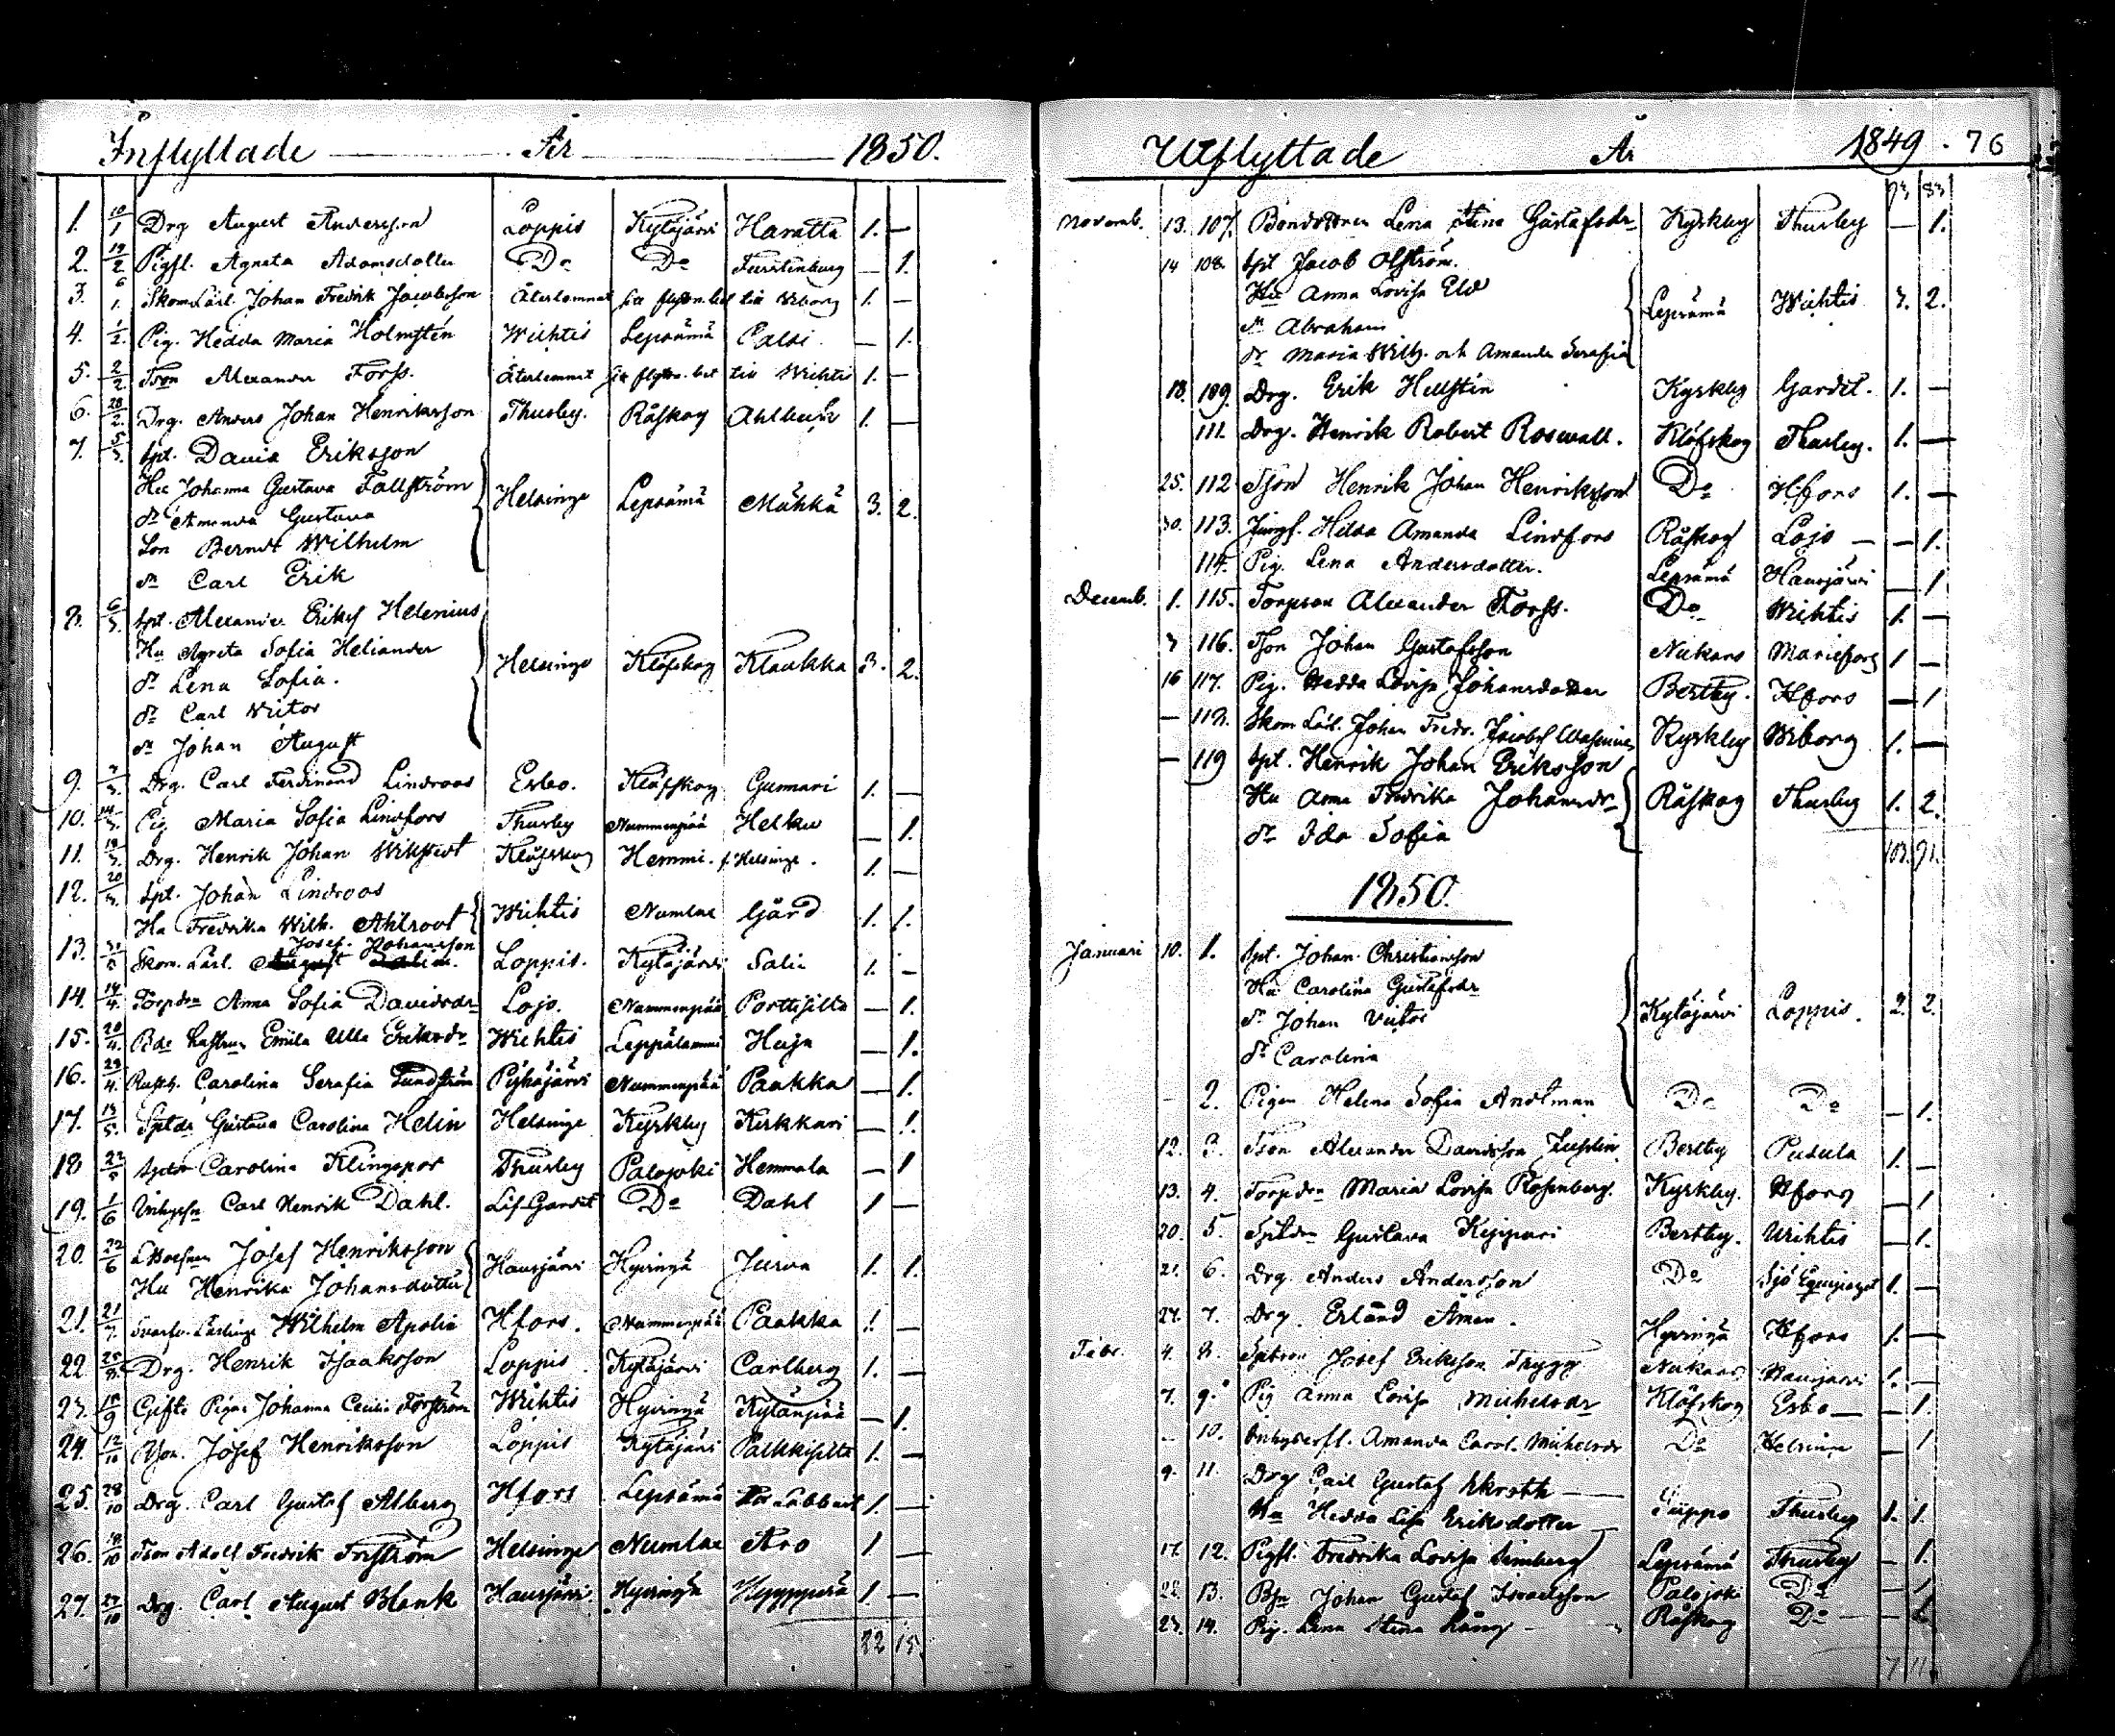 Inflyttade År 1850.
1. 10/1 Drg August Andersson Loppis Kytäjärvi Haratta 1. —
2. 19/2 Pigfl. Agneta Adamsdotter Do Do Furstenburg — 1.
3. 6/1. Skom Lärl. Johan Fredrik Jacobsson Återlemnat sitt flyttn. bet till Wiborg 1. —
4. 1/2. Pig. Hedda Maria Holmstén Wichtis Lepsämä Palsi — 1.
5. 2/2. Tson Alexander Forss. Återlemnat sitt flyttn. bet till Wichtis 1. —
6. 28/2. Drg. Anders Johan Henriksson Thusby. Råskog Ahlbeck 1. —
7. 5/3. Spt. David Eriksson
Hu Johanna Gustava Fallström
dr Amanda Gustava Helsinge Lepsämä Mühkä 3. 2.
Son Berndt Wilhelm
sn Carl Erik
8. 6/3. Spt. Alexander Eriks Helenius
Hu Agneta Sofia Heliander
dr Lena Sofia. Helsinge Klöfskog Klaukka 3. 2.
sn Carl Victor
sn Johan August
9. 7/3. Drg. Carl Ferdinand Lindroos Esbo. Klöfskog Gunnari 1. —
10. 14/3. Pig Maria Sofia Lindfors Thusby Nummenpää Helku — 1.
11. 19/3. Drg. Henrik Johan Wikstedt Klöfskog Hemmi. f. Helsinge. 1. —
12. 20/3. Spt. Johan Lindroos
Hu Fredrika Wilh. Ahlroot Wichtis Numlae Gård 1. 1.
Josef Johansson
13. Skom. Lärl. August Loppis. Kytäjärvi Salin 1. —
14. 14/4. Torpdr Anna Sofia Davidsdr Lojo. Nummenpää Porttisilta — 1.
15. 20/4. Emila Ulla Eriksdr Wichtis Leppälammi Huja — 1.
16. 29/4. Carolina Serafia Sundström Pyhäjärvi Nummenpää Paakka — 1.
17. 15/5. Sptdr Gustava Carolina Helin Helsinge Kyrkby Kirkkari — 1.
18 22/5 Carolina Klingspor Thusby Palojoki Hemmola — 1
19. 1/6 Inhyssn Carl Henrik Dahl. Lif-Gardet Do Dahl 1 —
20. 22/6 Josef Henriksson
Hu Henrika Johansdotter Hausjärvi Hyvingä Jurva 1. 1.
21. 21/7. Svarfv. Lärling Wilhelm Apolin Hfors. Nummenpää Paakka 1. —
22. 25/8. Drg. Henrik Isaaksson Loppis Kytäjärvi Carlberg 1. —
23. 18/9 Gifta Pigan Johanna Cecilia Forström Wichtis Hyvingä Kytänpää — 1.
24. 12/10 Josef Henriksson Loppis Kytäjärvi Palkkisilta 1. —
25. 28/10 Drg. Carl Gustaf Alberg Hfors Lepsämä 1. —
26. /10 Tson Adolf Fredrik Forström Helsinge Numlae Aro 1. —
27. 27/10 Drg. Carl August Blank Hausjärvi Hyvingä Hyyppärä 1. —
22 15.
Utflyttade År 1849. 76
93 83
Novemb. 13. 107. Bondedotter Lena Stina Gustafsdr Kyrkby Thusby — 1.
14 108. Spt Jacob Olström.
Hu Anna Lovisa Eld
sn Abraham Lepsämä Wichtis 3. 2.
dr Maria Wilh. och Amanda Serafia
18. 109. Drg. Erik Hellstén Kyrkby Gardet. 1. —
111. Drg. Henrik Robert Rosewall. Klöfskog Thusby. 1. —
25. 112 Tson Henrik Johan Henriksson Do Hfors 1. —
30. 113. Jungf. Hilda Amanda Lindfors Råskog Lojo — — 1.
114. Pig. Lena Andersdotter. Lepsämä Hausjärvi — 1
Decemb. 1. 115. Torpson Alexander Forss. Do Wichtis 1. —
3 116. Tson Johan Gustafsson Nukars Mariefors 1 —
16 117. Pig. Hedda Lovisa Johansdotter Bertby. Hfors — 1
— 118. Skom Lärl. Johan Fredr. Jacobss Wasenius Kyrkby Wiborg 1. —
— 119 Spt. Henrik Johan Eriksson
Hu Anna Fredrika Johansdr Råskog Thusby 1. 2.
dr Ida Sofia
103. 91.
1850.
Januari 10. 1. Spt. Johan Christiansson
Hu Carolina Gustafsdr
sn Johan Victor Kytäjärvi Loppis. 2. 2.
dr Carolina
— 2. Pigan Helena Sofia Andtman Do Do — 1.
12. 3. Tson Alexander Davidsson Juslin Bertby Pusula 1. —
13. 4. Torpdr Maria Lovisa Rosenberg. Kyrkby. Hfors — 1
20. 5. Sptdr Gustava Kyppari Bertby. Wichtis — 1.
21. 6. Drg. Anders Andersson Do Sjö Equipaget 1. —
27. 7. Drg. Erland Åman. Hyvingä Hfors 1. —
Febr. 4. 8. Sptson Josef Eriksson Trygg Nukars Hausjärvi 1. —
7. 9. Pig Anna Lovisa Michelsdr Klöfskog Esbo — — 1.
— 10. Inhyserfl. Amanda Carol. Michelsdr Do Helsinge — 1
9. 11. Drg Carl Gustaf Ekroth —
Hu Hedda Lisa Eriksdotter Siippo Thusby 1. 1.
17. 12. Pigfl. Fredrika Lovisa Simberg Lepsämä Thusby — 1.
22. 13. Johan Gustaf Israelsson Palojoki Do — 1
23. 14. Pig. Lena Stina Lång — Råskog Do — — 1.
7 11.